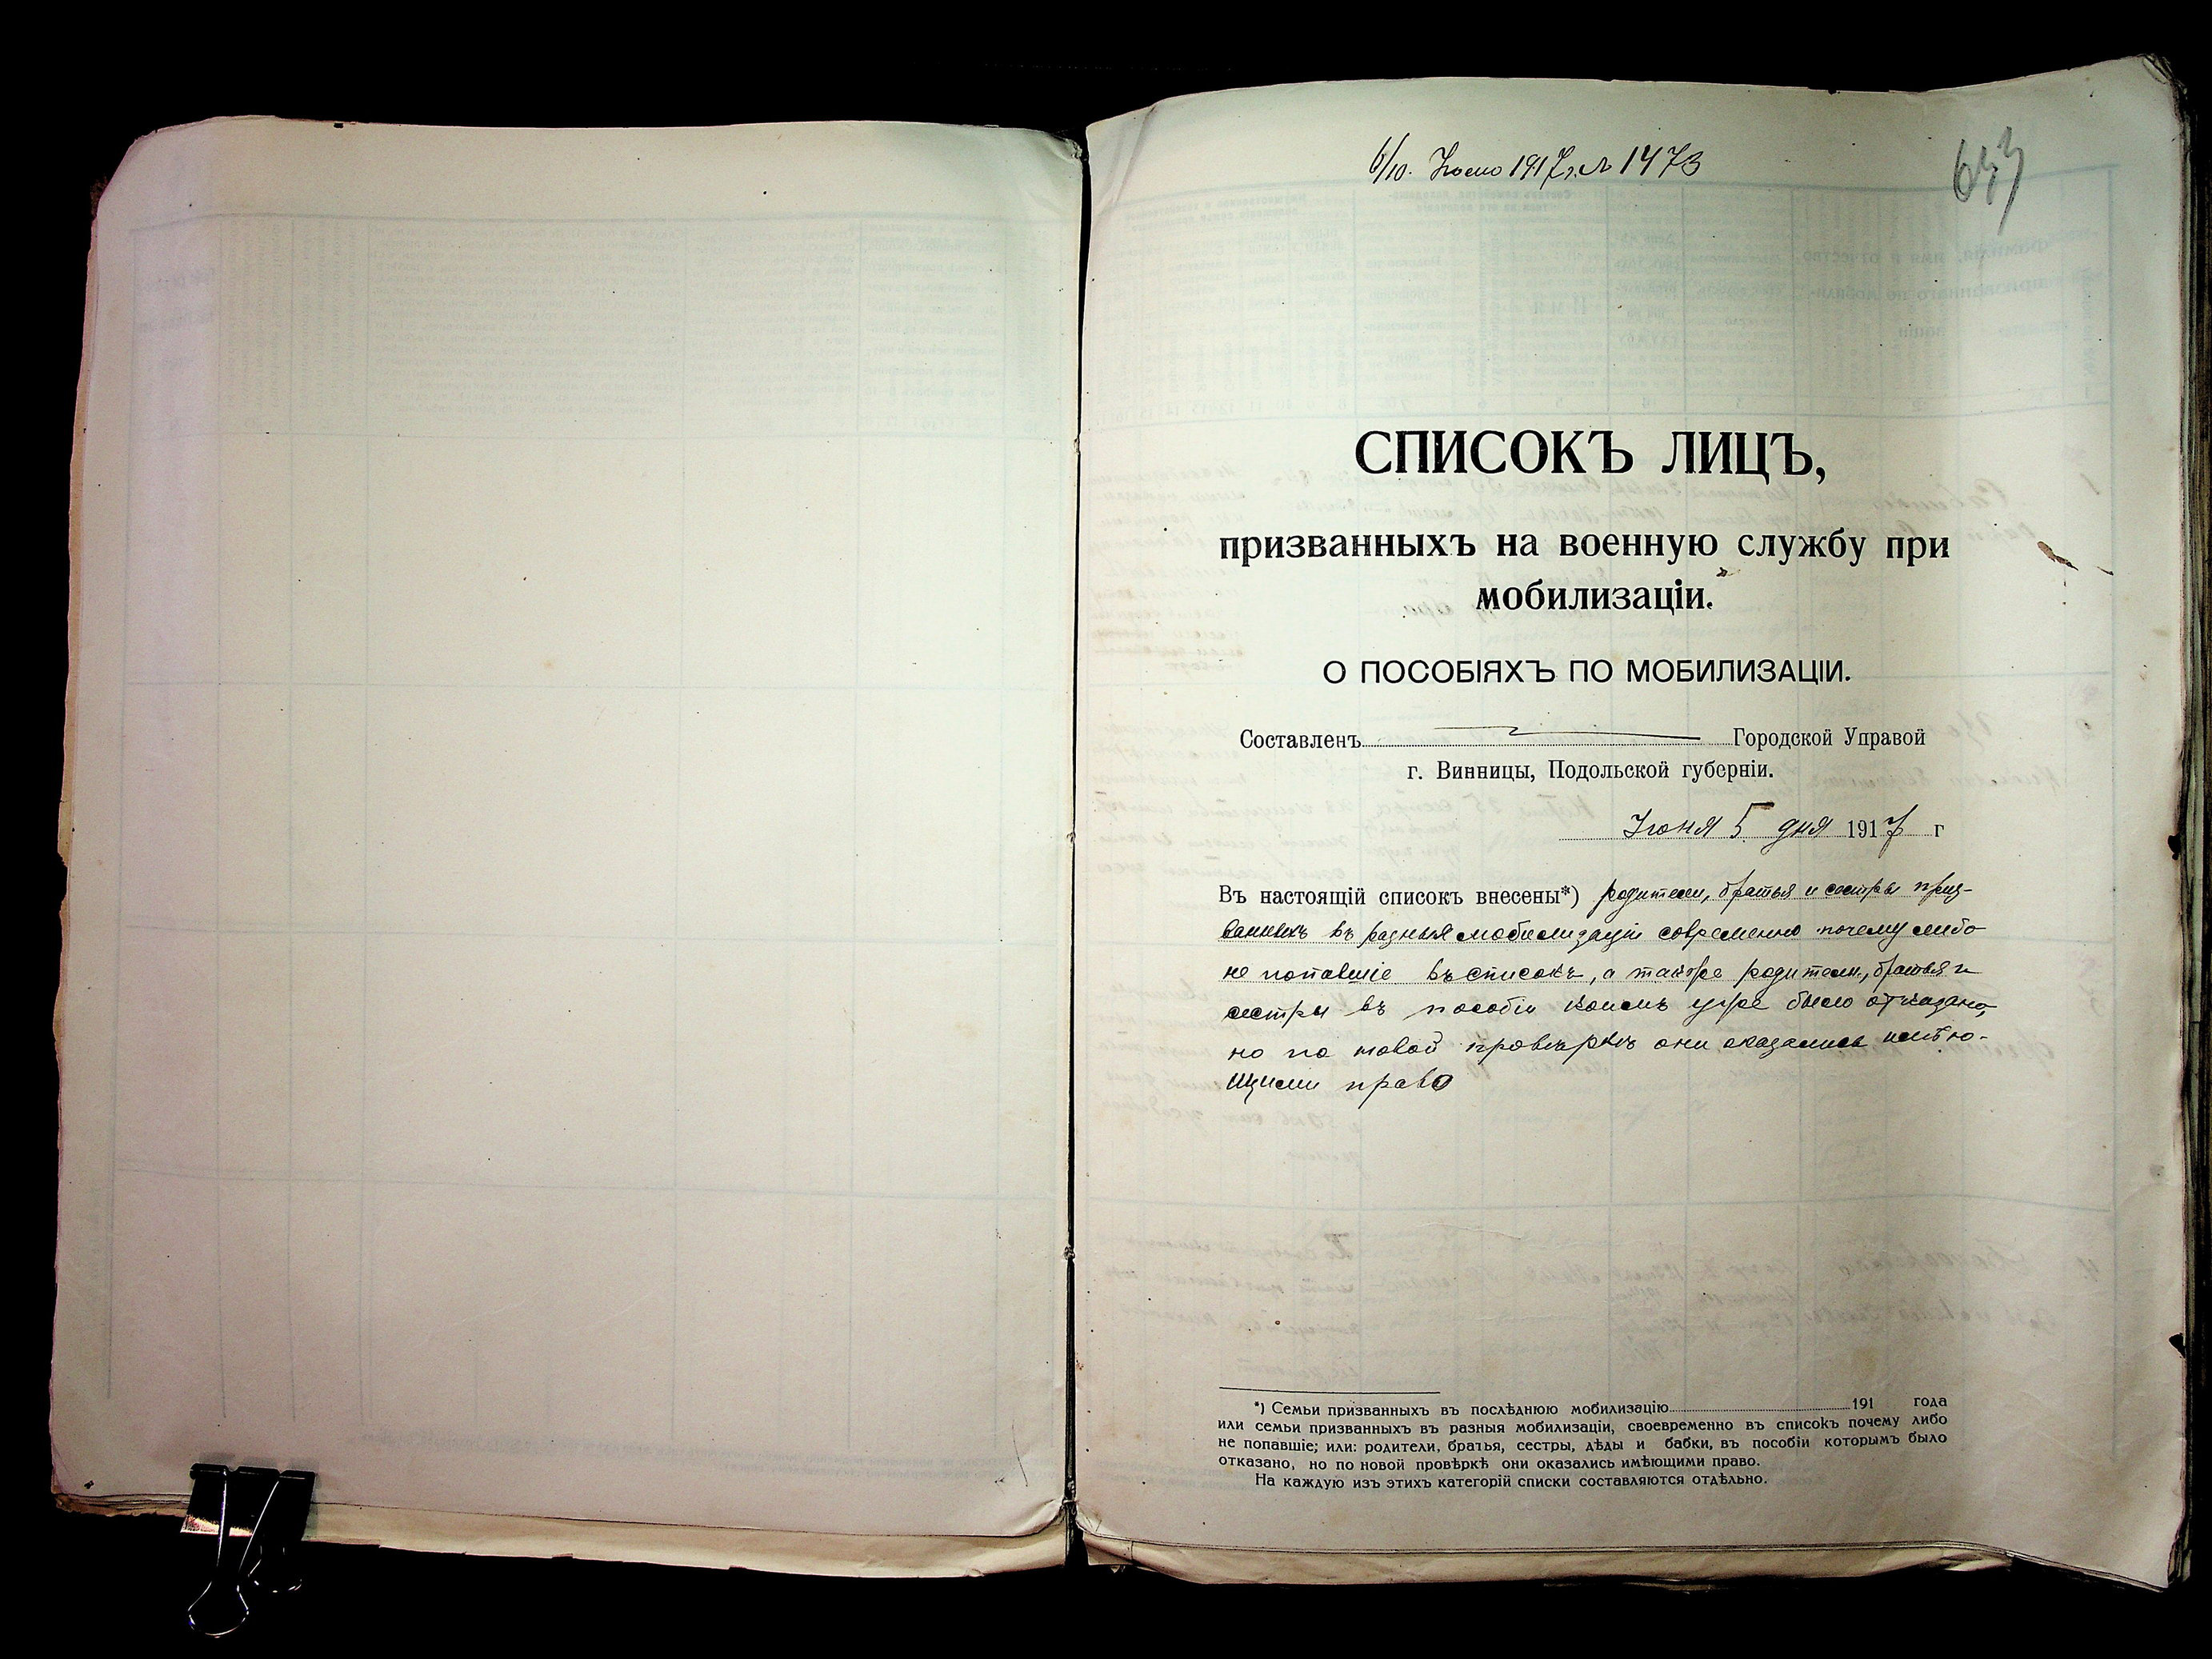 6/10. Іюню 1917 г. № 1473
633
СПИСОКЪ ЛИЦЪ,
призванныхъ на военную службу при
мобилизаціи.
О ПОСОБІЯХЪ ПО МОБИЛИЗАЦІИ.
Составленъ Городской Управой
г. Винницы, Подольской губерніи.
Іюня 5 дня 1917 г
Въ настоящій список внесены*) родители, братья и сестры приз-
ванныхъ въ разныя мобилизаціи современно почему либо
не попавшіе въ списокъ, а также родители, братья и
сестры въ пособіи коимъ уже было отказано,
но по новой провѣркѣ они оказались имѣю-
щими право
*) Семьи призванныхъ въ послѣднюю мобилизацію 191 года
или семьи призванныхъ въ разныя мобилизаціи, своевременно въ списокъ почему либо
не попавшіе; или: родители, братья, сестры, дѣды и бабки, въ пособіи которымъ было
отказано, но по новой провѣркѣ они оказались имѣющими право.
На каждую изъ этихъ категорій списки составляются отдѣльно.